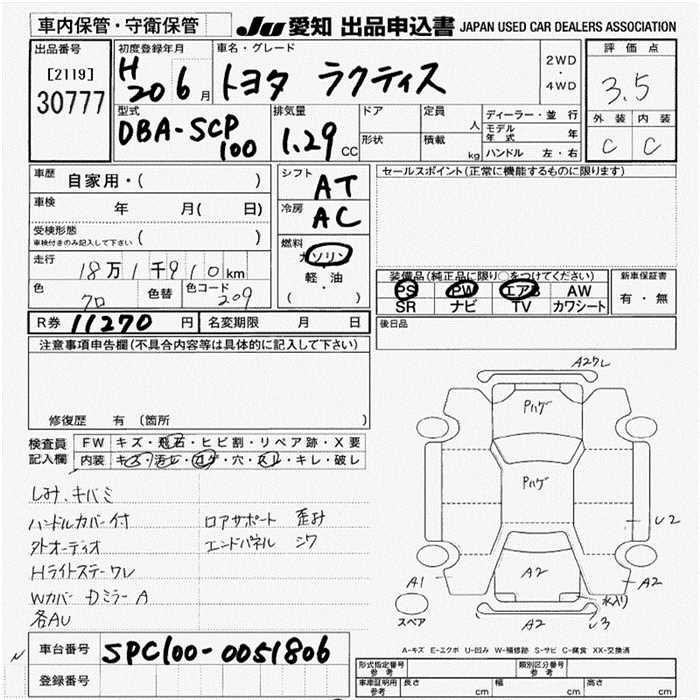 車内保管・守衛保管
JU 愛知 出品申込書 JAPAN USED CAR DEALERS ASSOCIATION
出品番号
[2119]
30777
初度登録年月
H20 6月
車名・グレード
トヨタ ラクティス
2WD
・
4WD
評価点
3.5
外装 内装
C C
型式
DBA-SCP100
排気量
1.29 CC
ドア
形状
定員
人
積載
kg
ディーラー・並行
モデル年式 年
ハンドル 左・右
車歴 自家用・( )
車検 年 月( 日)
受検形態
車検付きのみ記入して下さい ( )
走行 18万1千910km
色 クロ 色替 色コード 209
シフト AT
冷房 AC
燃料
ガソリン
・
軽油
( )
セールスポイント(正常に機能するものに限ります)
装備品(純正品に限り○をつけてください)
PS PW エアB AW
SR ナビ TV カワシート
新車保証書
有・無
R券 11270円 名変期限 月 日
後日品
注意事項申告欄(不具合内容等は具体的に記入して下さい)
修復歴 有 (箇所 )
検査員記入欄
FW キズ・飛石・ヒビ割・リペア跡・X要
内装 キズ・汚レ・コゲ・穴・スレ・キレ・破レ
しみ、キバミ
ハンドルカバー付 ロアサポート 歪み
外オーディオ エンドパネル シワ
Hライトステーワレ
Wカバー DミラーA
各AU
A2ワレ
Pハゲ
Pハゲ
U2
A1
A2
A2
水入り
A2
U3
スペア
A-キズ E-エクボ U-凹み W-補修跡 S-サビ C-腐食 XX-交換済
車台番号 SPC100-0051806
登録番号
型式指定番号
参考
類別区分番号
参考
車庫証明用
参考
長さ cm 幅 cm 高さ cm